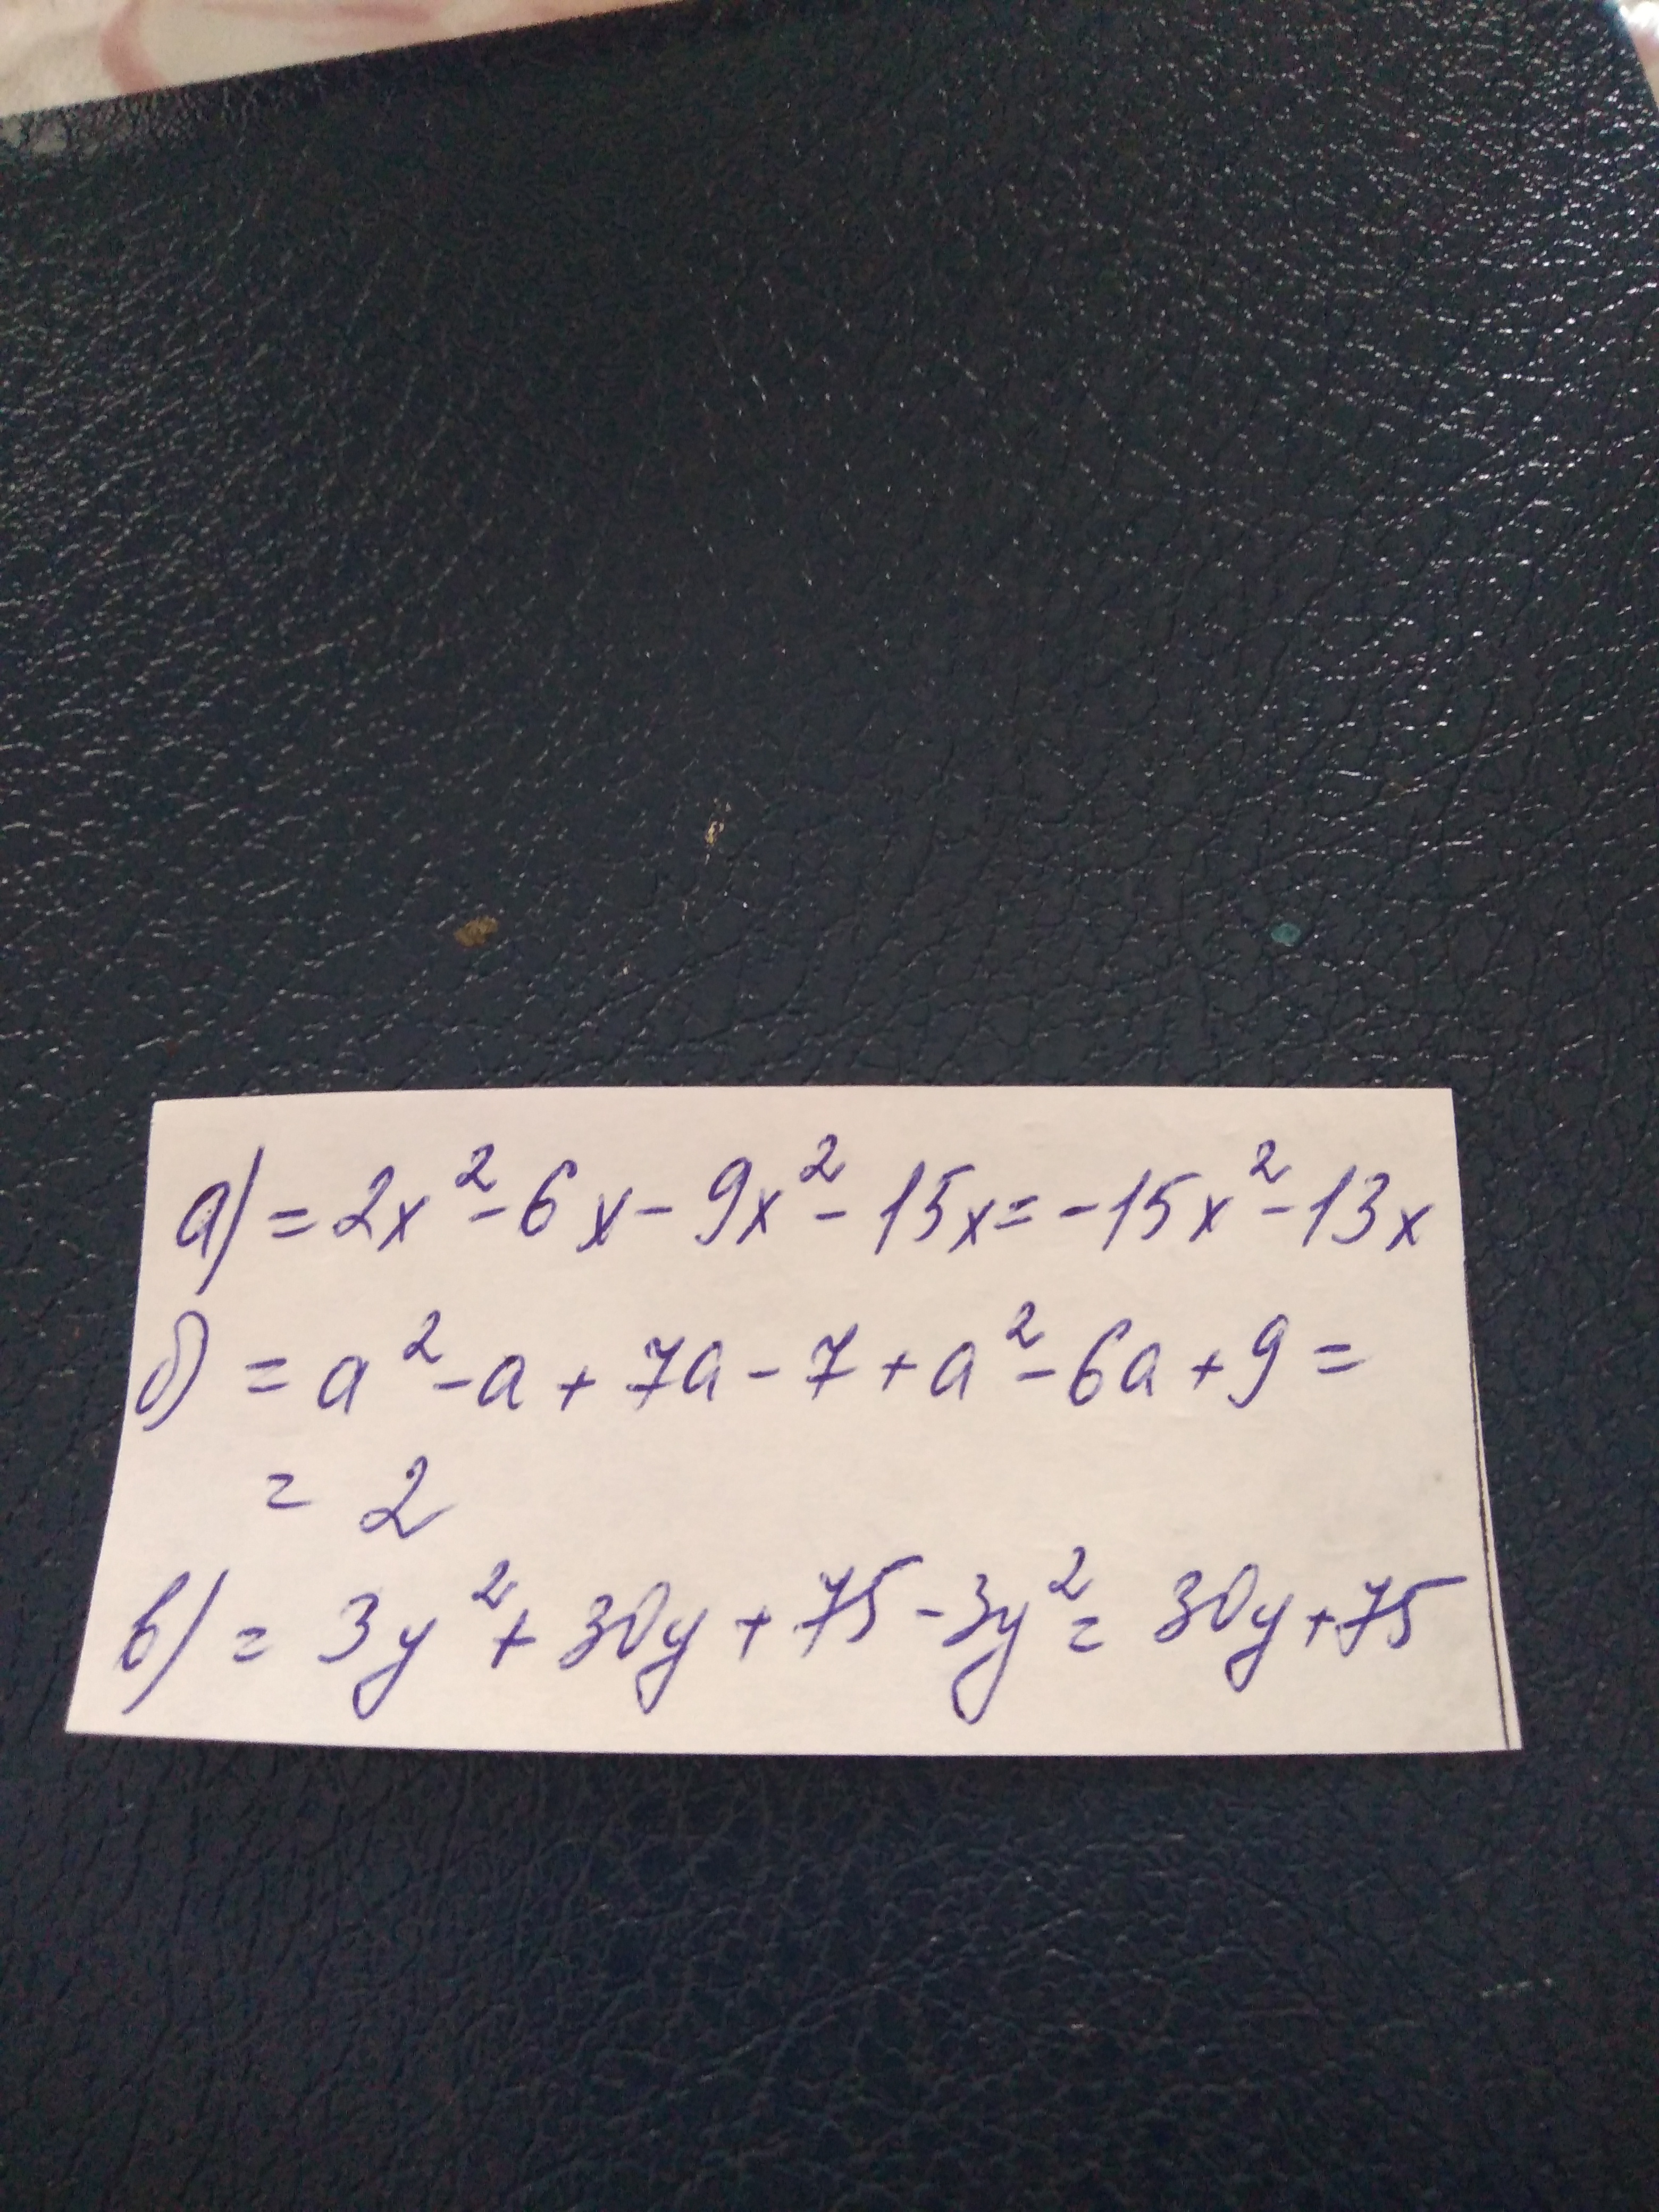 а) = 2x² - 6x - 9x² - 15x = -15x² - 13x
б) = a² - a + 7a - 7 + a² - 6a + 9 =
= 2
в) = 3y² + 30y + 75 - 3y² = 30y + 75